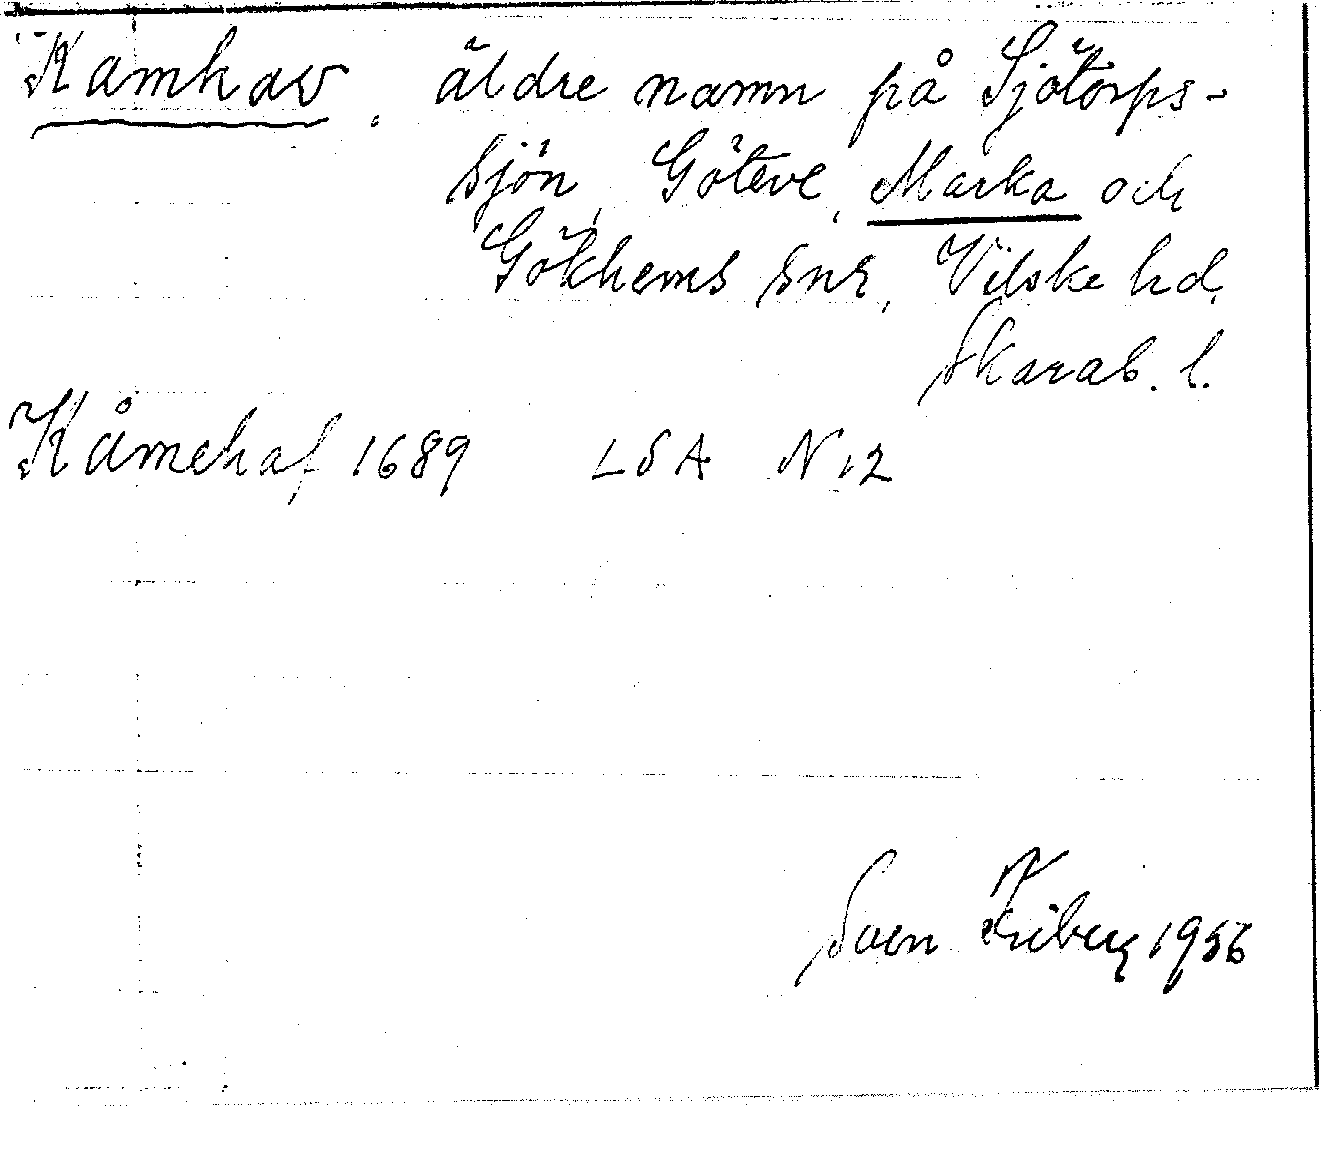 Kamhav, äldre namn på Sjötorps-
sjön, Göteve, Marka och
Gökhems snr, Vilske hd,
Skarab. l.
Kåmehaf 1689 LSA N12
Sven Friberg 1956